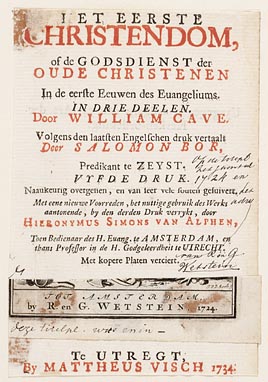 HET EERSTE
CHRISTENDOM,
of de GODSDIENST der
OUDE CHRISTENEN
In de eerste Eeuwen des Euangeliums.
IN DRIE DEELEN.
Door WILLIAM CAVE.
Volgens den laatsten Engelschen druk vertaalt
Door SALOMON BOR,
Predikant te ZEYST.
VYFDE DRUK.
1724 en
Naaukeurig overgezien, en van zeer vele fouten gesuivert,
Met eene nieuwe Voorreden, het nuttige gebruik des Werks
aantonende, by den derden Druk verrykt, door
HIERONYMUS SIMONS VAN ALPHEN,
Toen Bedienaar des H. Euang. te AMSTERDAM, en
thans Professor in de H. Godgeleerdheit te UTRECHT.
Met kopere Platen verciert.
van R en G
Wetstein
TOT AMSTERDAM,
by R. en G. WETSTEIN, 1724.
deze titelpl. was in –
Te UTREGT,
By MATTHEUS VISCH 1734: